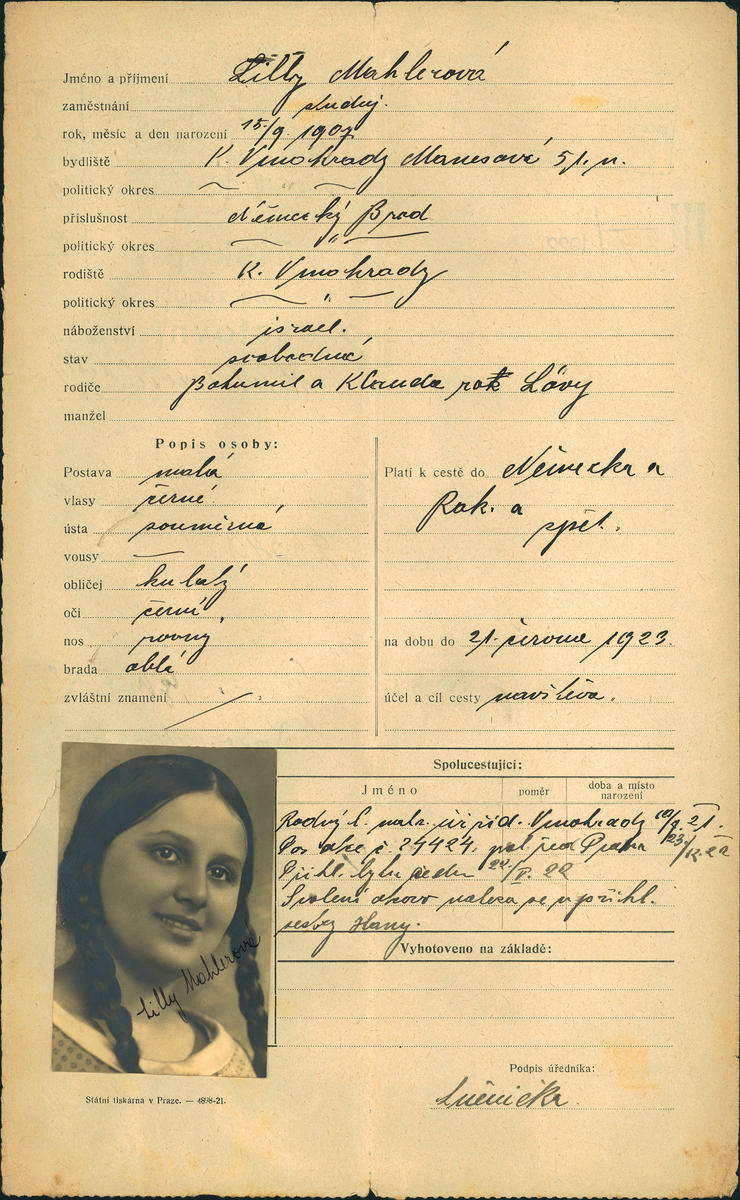 Jméno a příjmení Lilly Mahlerová
zaměstnání studuj.
rok, měsíc a den narození 15/9. 1907
bydliště K. Vinohrady Manesová 51. n.
politický okres 〃
příslušnost Německý Brod
politický okres 〃
rodiště K. Vinohrady
politický okres 〃
náboženství israel.
stav svobodná
rodiče Bohumil a Klauda roz Lövy
manžel
Popis osoby:
Postava malá
vlasy černé
ústa souměrná
vousy —
obličej kulatý
oči černé
nos rovný
brada oblá
zvláštní znamení /.
Platí k cestě do Německa a
Rak. a
zpět.
na dobu do 21. června 1923.
účel a cíl cesty návštěva.
Spolucestující:
Jméno poměr doba a místo narození
Rodný l. mata. úř. Vinohrady
Pas. č. 24424. pol. Praha
Přihl. bytu
Svolení otcovo nalézá se v přihl.
sestry Hany.
Vyhotoveno na základě:
Lilly Mahlerová
Podpis úředníka:
Státní tiskárna v Praze. — 4898-21.